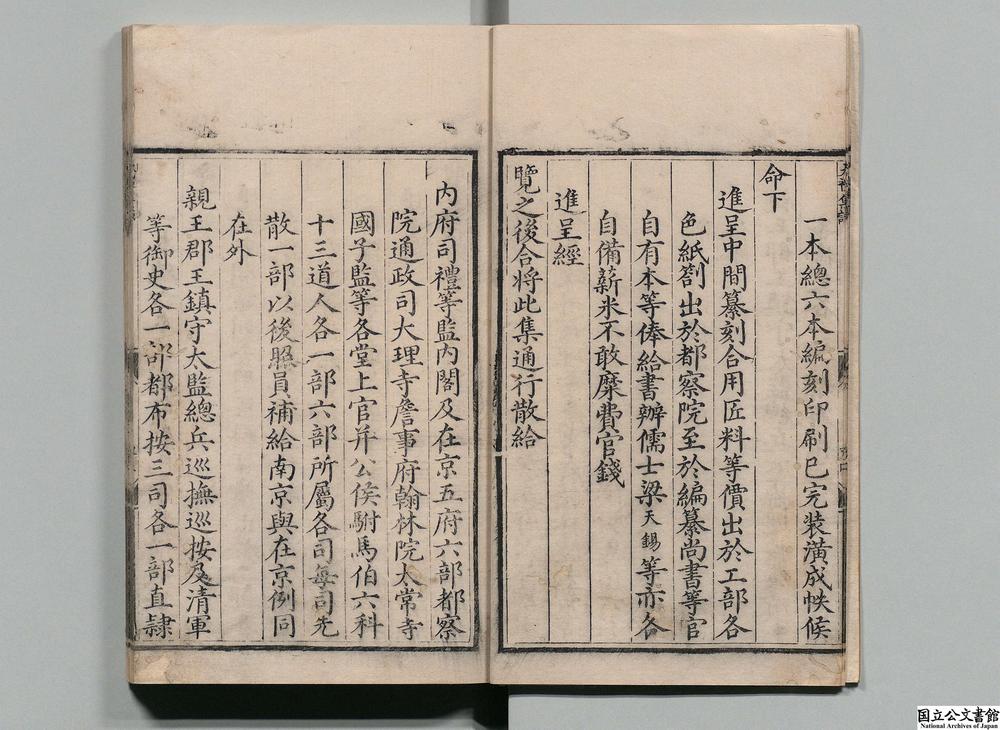 一本總六本編刻印刷已完装潢成帙候
命下
進呈中間纂刻合用匠料等價出於工部各
色紙劄出於都察院至於編纂尚書等官
自有本等俸給書辦儒士梁天錫等亦各
自備薪米不敢糜費官錢
進呈經
覽之後合將此集通行散給
内府司禮等監内閣及在京五府六部都察
院通政司大理寺詹事府翰林院太常寺
國子監等各堂上官并公侯駙馬伯六科
十三道人各一部六部所屬各司每司先
散一部以後照員補給南京與在京例同
在外
親王郡王鎮守太監總兵巡撫巡按及清軍
等御史各一部都布按三司各一部直隸
国立公文書館
National Archives of Japan